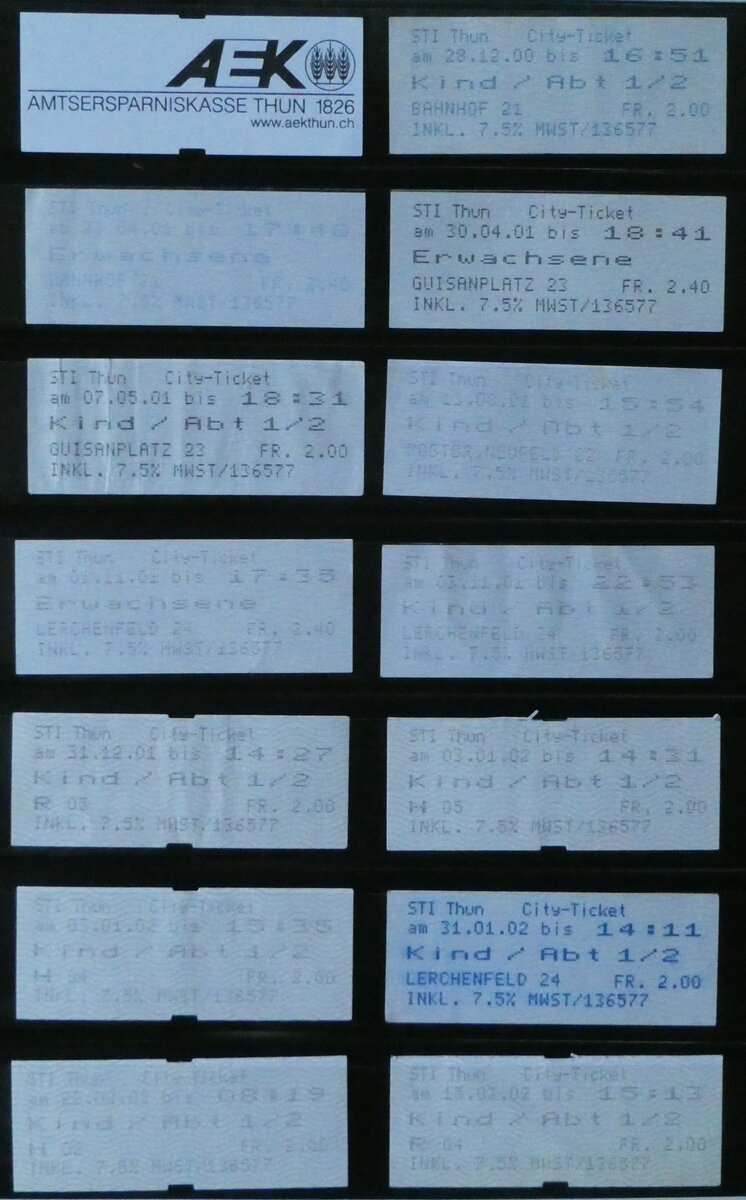 AEK
AMTSERSPARNISKASSE THUN 1826
www.aekthun.ch
STI Thun City-Ticket
am 28.12.00 bis 16:51
Kind / Abt 1/2
BAHNHOF 21 FR. 2.00
INKL. 7.5% MWST/136577
STI Thun City-Ticket
bis 17:46
Erwachsene
BAHNHOF FR. 2.40
INKL. 7.5% MWST/136577
STI Thun City-Ticket
am 30.04.01 bis 18:41
Erwachsene
GUISANPLATZ 23 FR. 2.40
INKL. 7.5% MWST/136577
STI Thun City-Ticket
am 07.05.01 bis 18:31
Kind / Abt 1/2
GUISANPLATZ 23 FR. 2.00
INKL. 7.5% MWST/136577
STI Thun City-Ticket
am bis 15:54
Kind / Abt 1/2
POSTBR.NEUFELD 22 FR. 2.00
INKL. 7.5% MWST/136577
STI Thun City-Ticket
am 01.11.01 bis 17:35
Erwachsene
LERCHENFELD 24 FR. 2.40
INKL. 7.5% MWST/136577
STI Thun City-Ticket
am 03.11.01 bis 22:53
Kind / Abt 1/2
LERCHENFELD 24 FR. 2.00
INKL. 7.5% MWST/136577
STI Thun City-Ticket
am 31.12.01 bis 14:27
Kind / Abt 1/2
R 03 FR. 2.00
INKL. 7.5% MWST/136577
STI Thun City-Ticket
am 03.01.02 bis 14:31
Kind / Abt 1/2
H 05 FR. 2.00
INKL. 7.5% MWST/136577
STI Thun City-Ticket
am 03.01.02 bis 15:35
Kind / Abt 1/2
H 04 FR. 2.00
INKL. 7.5% MWST/136577
STI Thun City-Ticket
am 31.01.02 bis 14:11
Kind / Abt 1/2
LERCHENFELD 24 FR. 2.00
INKL. 7.5% MWST/136577
STI Thun City-Ticket
am bis 08:19
Kind / Abt 1/2
H 02 FR. 2.00
INKL. 7.5% MWST/136577
STI Thun City-Ticket
am bis 15:13
Kind / Abt 1/2
R 04 FR. 2.00
INKL. 7.5% MWST/136577